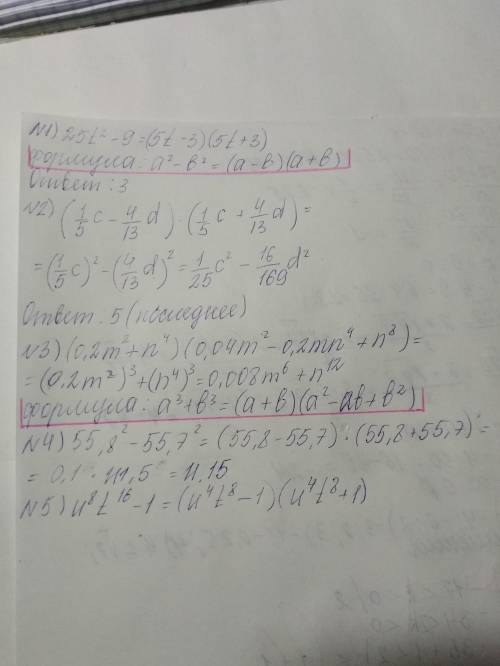 №1) 25t² - 9 = (5t - 3)(5t + 3)
формула: a² - в² = (a - в)(a + в)
Ответ: 3
№2) (1/5 c - 4/13 d) · (1/5 c + 4/13 d) =
= (1/5 c)² - (4/13 d)² = 1/25 c² - 16/169 d²
Ответ: 5 (последнее)
№3) (0,2m² + n⁴)(0,04m² - 0,2mn⁴ + n⁸) =
= (0,2m²)³ + (n⁴)³ = 0,008m⁶ + n¹²
формула: a³ + в³ = (a + в)(a² - ав + в²)
№4) 55,8² - 55,7² = (55,8 - 55,7) · (55,8 + 55,7) =
= 0,1 · 111,5 = 11.15
№5) u⁸t¹⁶ - 1 = (u⁴t⁸ - 1)(u⁴t⁸ + 1)